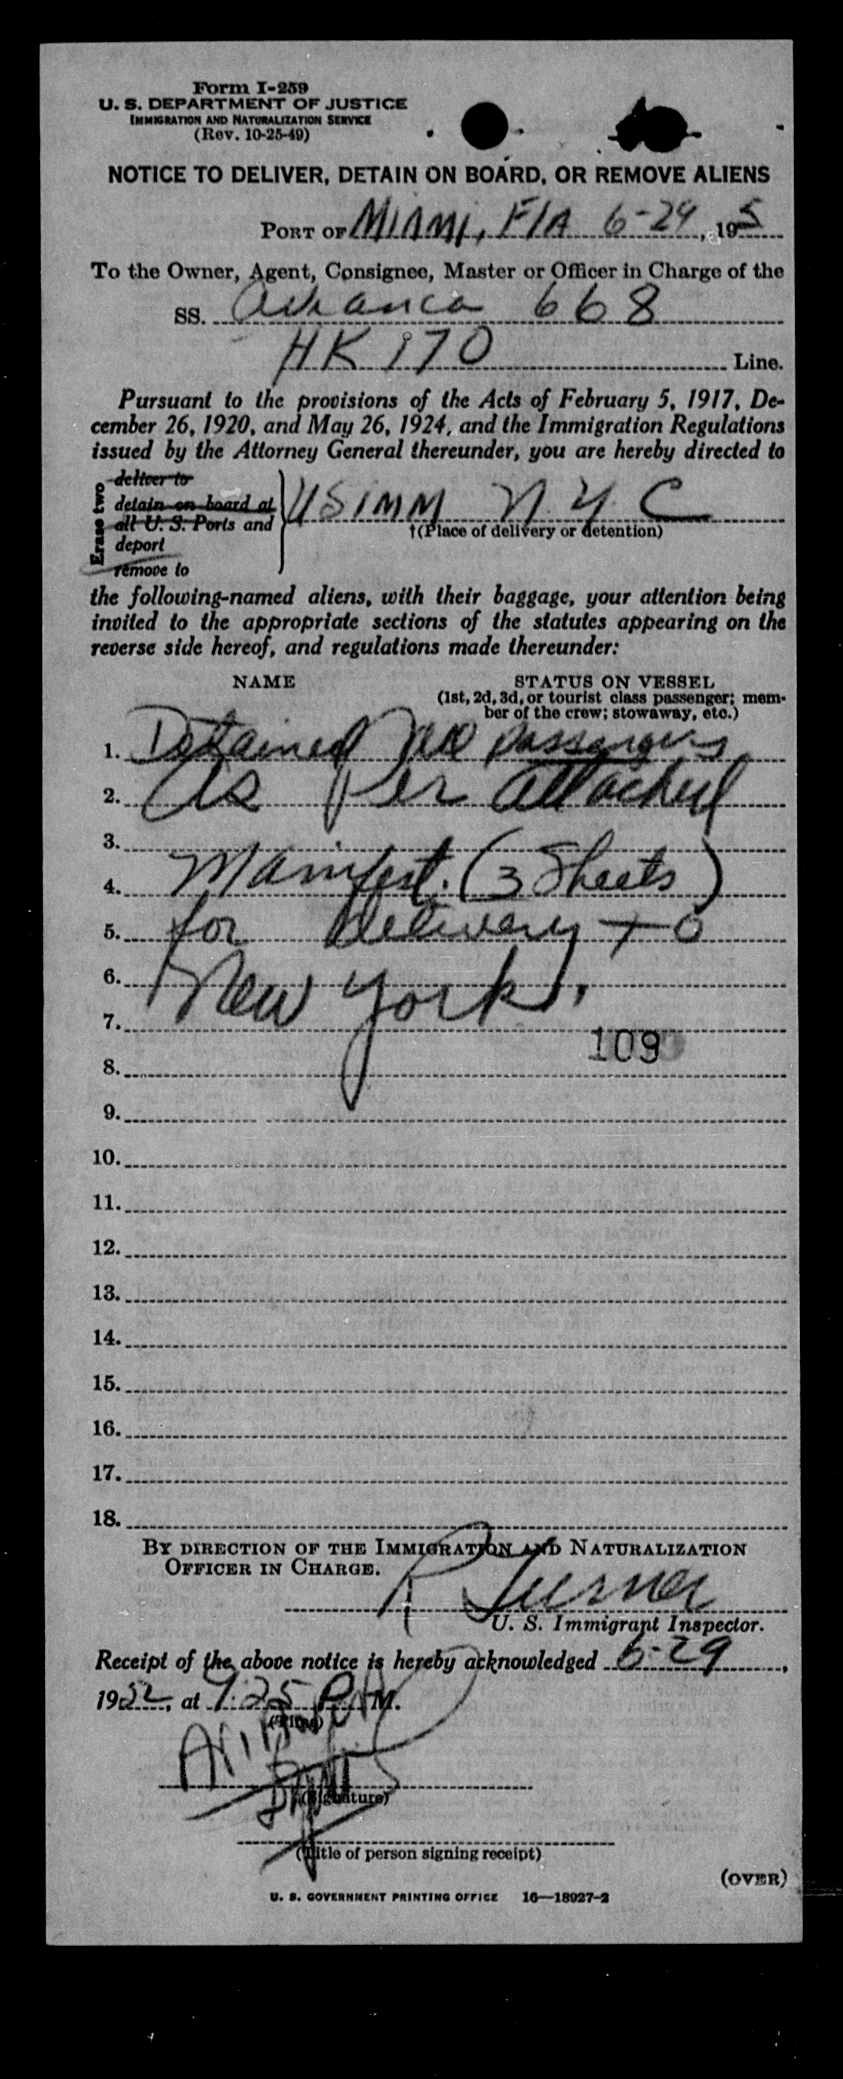 Form I-259
U. S. DEPARTMENT OF JUSTICE
IMMIGRATION AND NATURALIZATION SERVICE
(Rev. 10-25-49)
NOTICE TO DELIVER, DETAIN ON BOARD, OR REMOVE ALIENS
PORT OF MIAMI, FlA 6-29, 195
To the Owner, Agent, Consignee, Master or Officer in Charge of the
SS. Avianca 668
HK 170 Line.
Pursuant to the provisions of the Acts of February 5, 1917, De-
cember 26, 1920, and May 26, 1924, and the Immigration Regulations
issued by the Attorney General thereunder, you are hereby directed to
Erase two
deliver to
detain on board at
all U. S. Ports and
deport
remove to
USIMM N.Y.C
†(Place of delivery or detention)
the following-named aliens, with their baggage, your attention being
invited to the appropriate sections of the statutes appearing on the
reverse side hereof, and regulations made thereunder:
NAME STATUS ON VESSEL
(1st, 2d, 3d, or tourist class passenger; mem-
ber of the crew; stowaway, etc.)
1. Detained passengers
2. As Per attached
3.
4. Manifest. (3 Sheets)
5. for delivery to
6. New York.
7.
109
8.
9.
10.
11.
12.
13.
14.
15.
16.
17.
18.
BY DIRECTION OF THE IMMIGRATION AND NATURALIZATION
OFFICER IN CHARGE.
R Turner
U. S. Immigrant Inspector.
Receipt of the above notice is hereby acknowledged 6-29,
1952, at 9:25 P.M.
(Time)
(Signature)
(Title of person signing receipt)
(OVER)
U. S. GOVERNMENT PRINTING OFFICE 16—18927-2